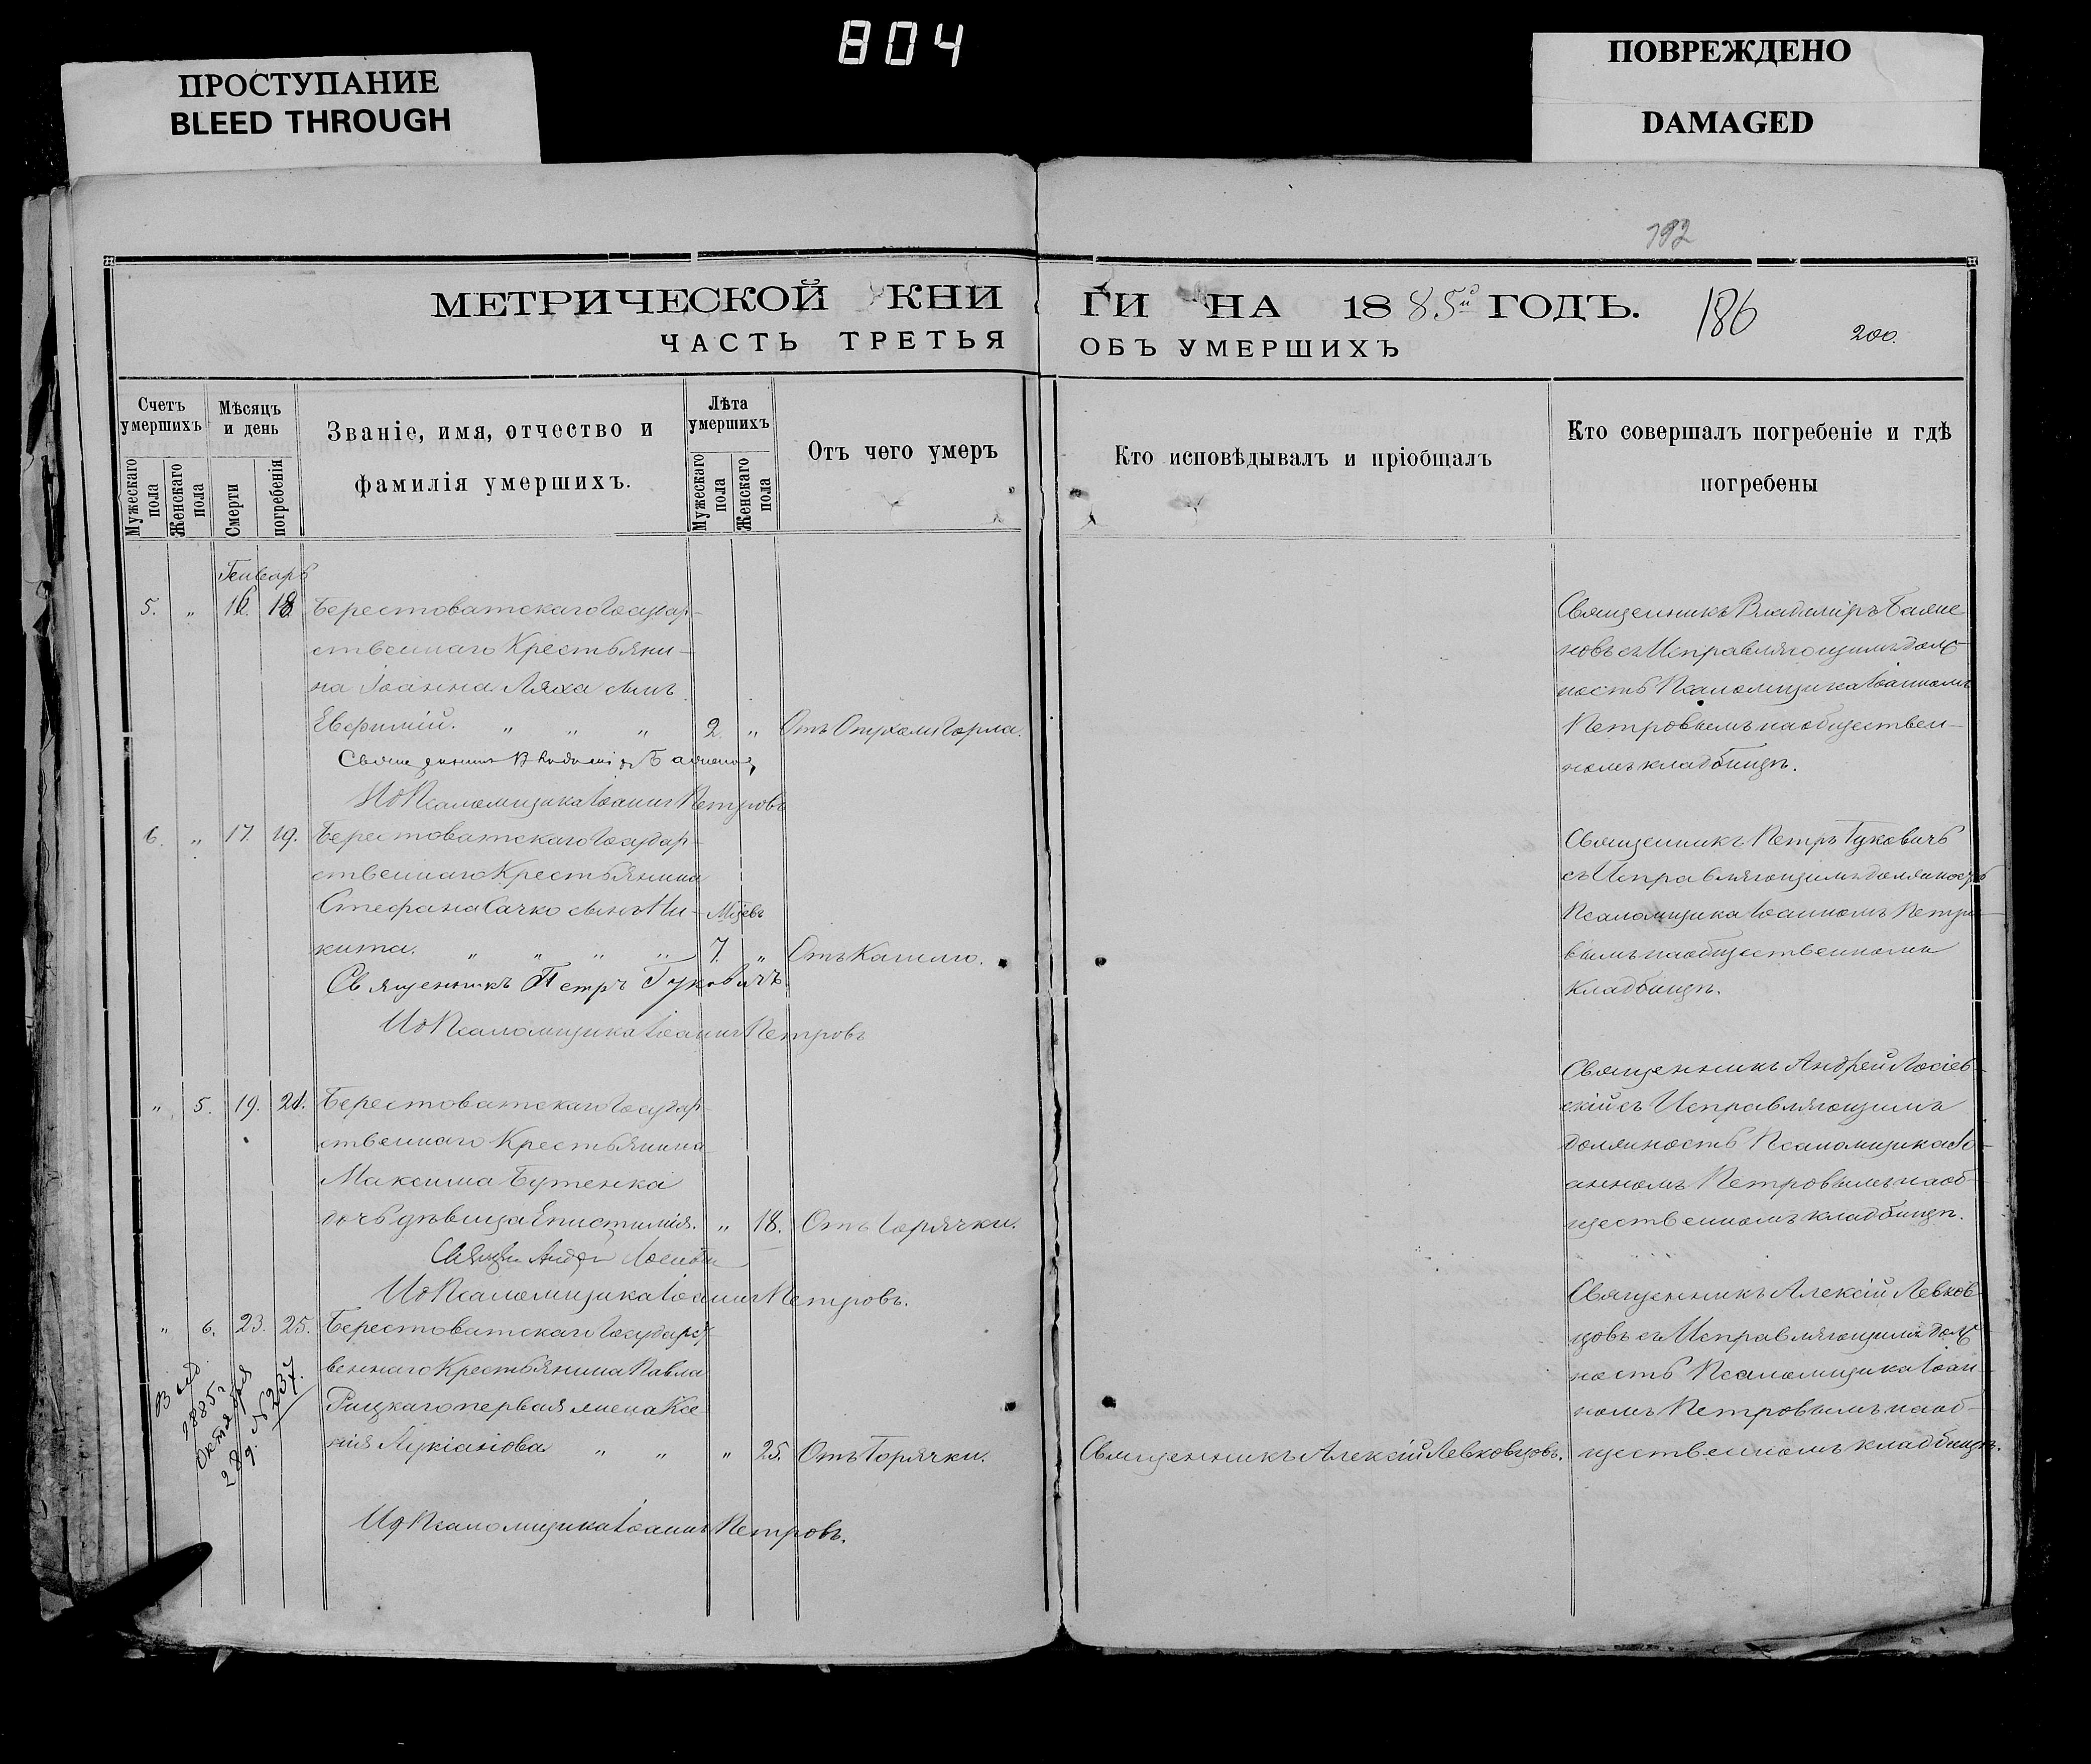 804
ПРОСТУПАНИЕ
BLEED THROUGH
ПОВРЕЖДЕНО
DAMAGED
192
МЕТРИЧЕСКОЙ КНИ
ГИ НА 1885й ГОДЪ.
186
200.
ЧАСТЬ ТРЕТЬЯ
ОБЪ УМЕРШИХЪ
Счетъ умершихъ
Мужескаго пола
Женскаго пола
Мѣсяцъ и день
Смерти
погребенія
Званіе, имя, отчество и
фамилія умершихъ.
Лѣта умершихъ
Мужескаго пола
Женскаго пола
Отъ чего умеръ
Кто исповѣдывалъ и пріобщалъ
Кто совершалъ погребеніе и гдѣ
погребены
Генварь
5. „ 16. 18. Берестоватскаго Государ-
ственнаго Крестьяни-
на Іоанна Ляха сынъ
Евфимій. „ „ „ 2. „ Отъ Опухоли Горла.
Священникъ Владиміръ
И д Псаломщика Іоаннъ Петровъ
Священникъ Владиміръ
новъ съ Исправляющимъ долж
ность Псаломщика Іоанномъ
Петровымъ на обществен-
номъ кладбищѣ.
6. „ 17. 19. Берестоватскаго Государ-
ственнаго Крестьянина
Стефана Сачко сынъ Ни-
Мцевъ
кита. „ „ „ „ 7. „ Отъ Кашлю.
Священникъ Петръ Гуковичъ
И д Псаломщика Іоаннъ Петровъ
Священникъ Петръ Гуковичъ
съ Исправляющимъ должность
Псаломщика Іоанномъ Петро-
вымъ на общественномъ
кладбищѣ.
„ 5. 19. 21. Берестоватскаго Государ-
ственнаго Крестьянина
Максима Бутенка
дочь дѣвица Епистимія. „ 18. Отъ Горячки.
И д Псаломщика Іоаннъ Петровъ.
Священникъ Андрей Лосіев-
скій съ Исправляющимъ
должность Псаломщика Іо-
анномъ Петровымъ на об-
щественномъ кладбищѣ.
„ 6. 23. 25. Берестоватскаго Государст-
веннаго Крестьянина Павла
Рицкаго первая жена Ксе-
нія Лукіанова „ „ „ 25. Отъ Горячки.
Священникъ Алексій Левковцовъ.
И д Псаломщика Іоаннъ Петровъ.
Священникъ Алексій Левков-
цовъ съ Исправляющимъ долж
ность Псаломщика Іоан-
номъ Петровымъ на об-
щественномъ кладбищѣ.
1885 г
Октября
28 д. № 237.